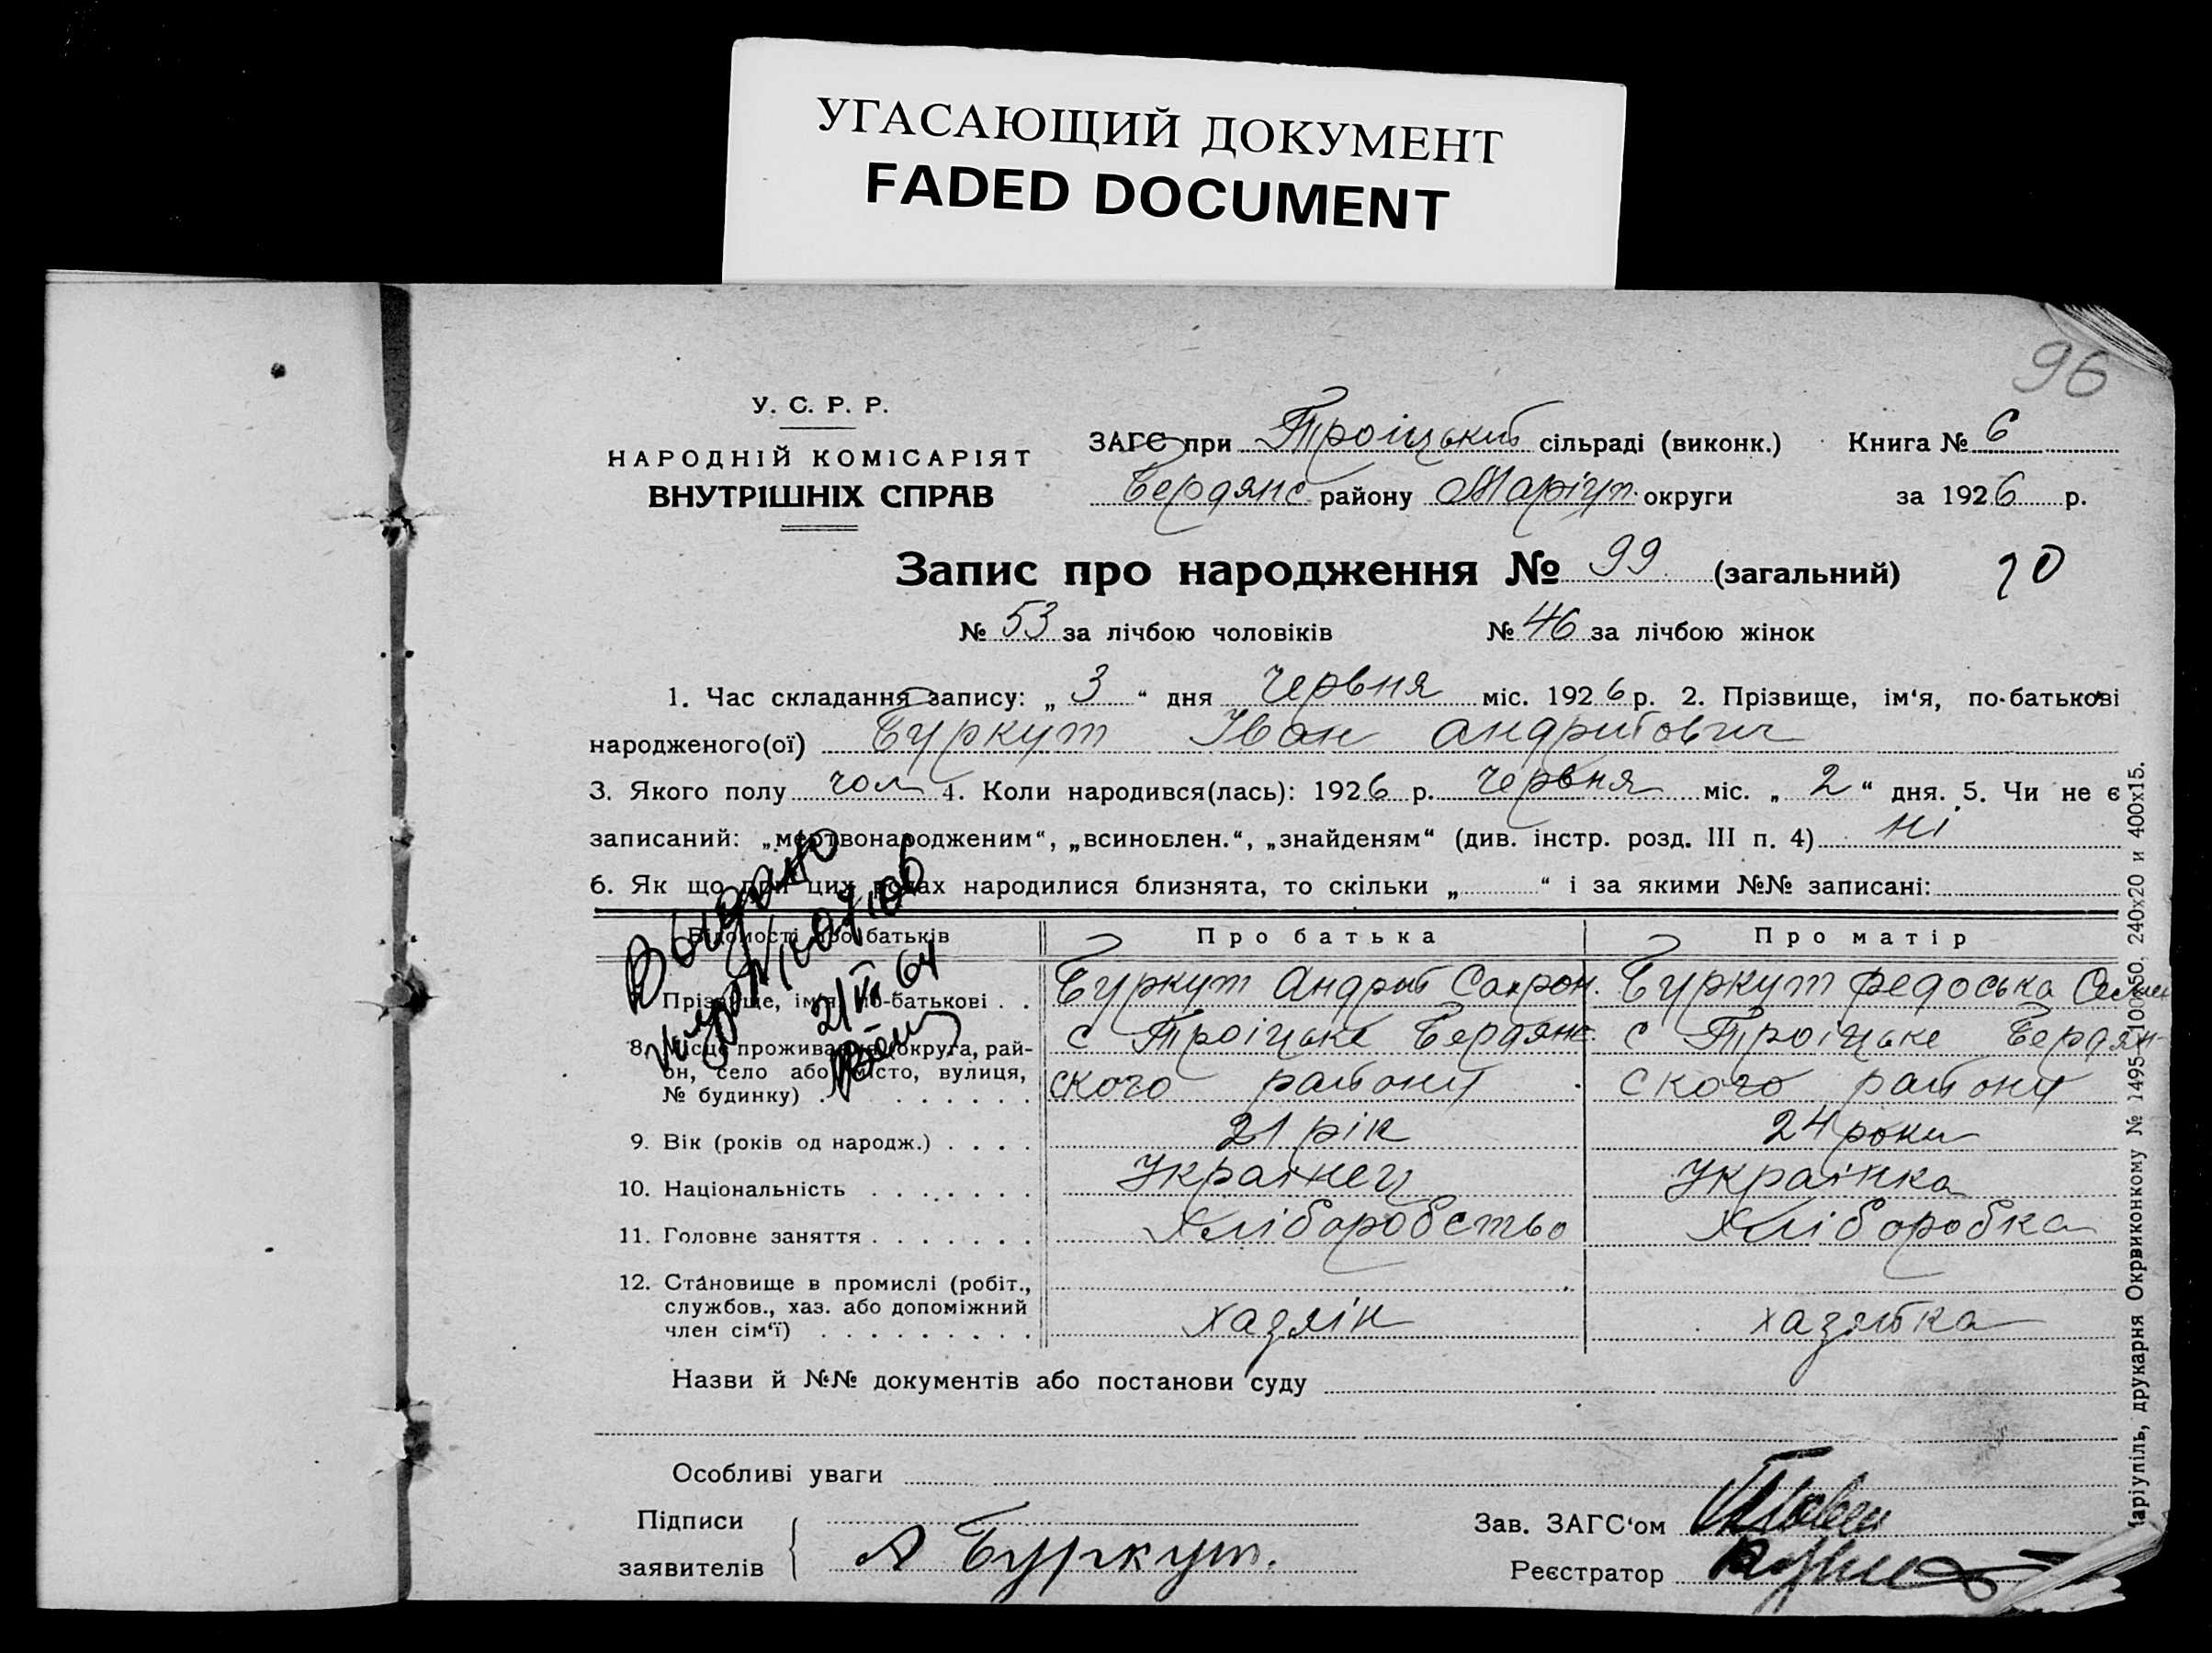 УГАСАЮЩИЙ ДОКУМЕНТ
FADED DOCUMENT
96
У. С. Р. Р.
НАРОДНІЙ КОМІСАРІЯТ
ВНУТРІШНІХ СПРАВ
ЗАГС при Троіцький сільраді (виконк.) Книга № 6
Бердянс району Маріуп. округи за 1926 р.
Запис про народження № 99. (загальний) 70
№ 53 за лічбою чоловіків № 46 за лічбою жінок
1. Час складання запису: „ 3 “ дня Червня міс. 1926 р. 2. Прізвище, ім‘я, по-батькові
народженого(ої) Буркут Іван Андрійович
3. Якого полу чол 4. Коли народився(лась): 1926 р. Червня міс. „ 2 “ дня. 5. Чи не є
записаний: „мертвонародженим“, „всиновлен.“, „знайденям“ (див. інстр. розд. III п. 4) ні
6. Як що при цих родах народилися близнята, то скільки „ “ і за якими №№ записані:
Відомості про батьків Про батька Про матір
7. Прізвище, ім‘я, по-батькові . . Буркут Андрій Сафрон. Буркут Федоська
8. Місце проживання (округа, рай- с Троіцьке Бердянс- с Троіцьке Бердян-
он, село або місто, вулиця, ского району ского району
№ будинку) . . . . . . . .
9. Вік (років од народж.) . . . . 21 рік 24 роки
10. Національність . . . . . . . Украінец Украінка
11. Головне заняття . . . . . . . Хліборобство Хліборобка
12. Становище в промислі (робіт.,
службов., хаз. або допоміжний
член сім‘ї) . . . . . . . . . хазяін хазяйка
Видано
21/VI 64
Назви й №№ документів або постанови суду
Особливі уваги
Підписи
заявителів А Буркут.
Зав. ЗАГС‘ом
Реєстратор
Маріупіль, друкарня Окрвиконкому № 1495-100×50. 240х20 и 400х15.